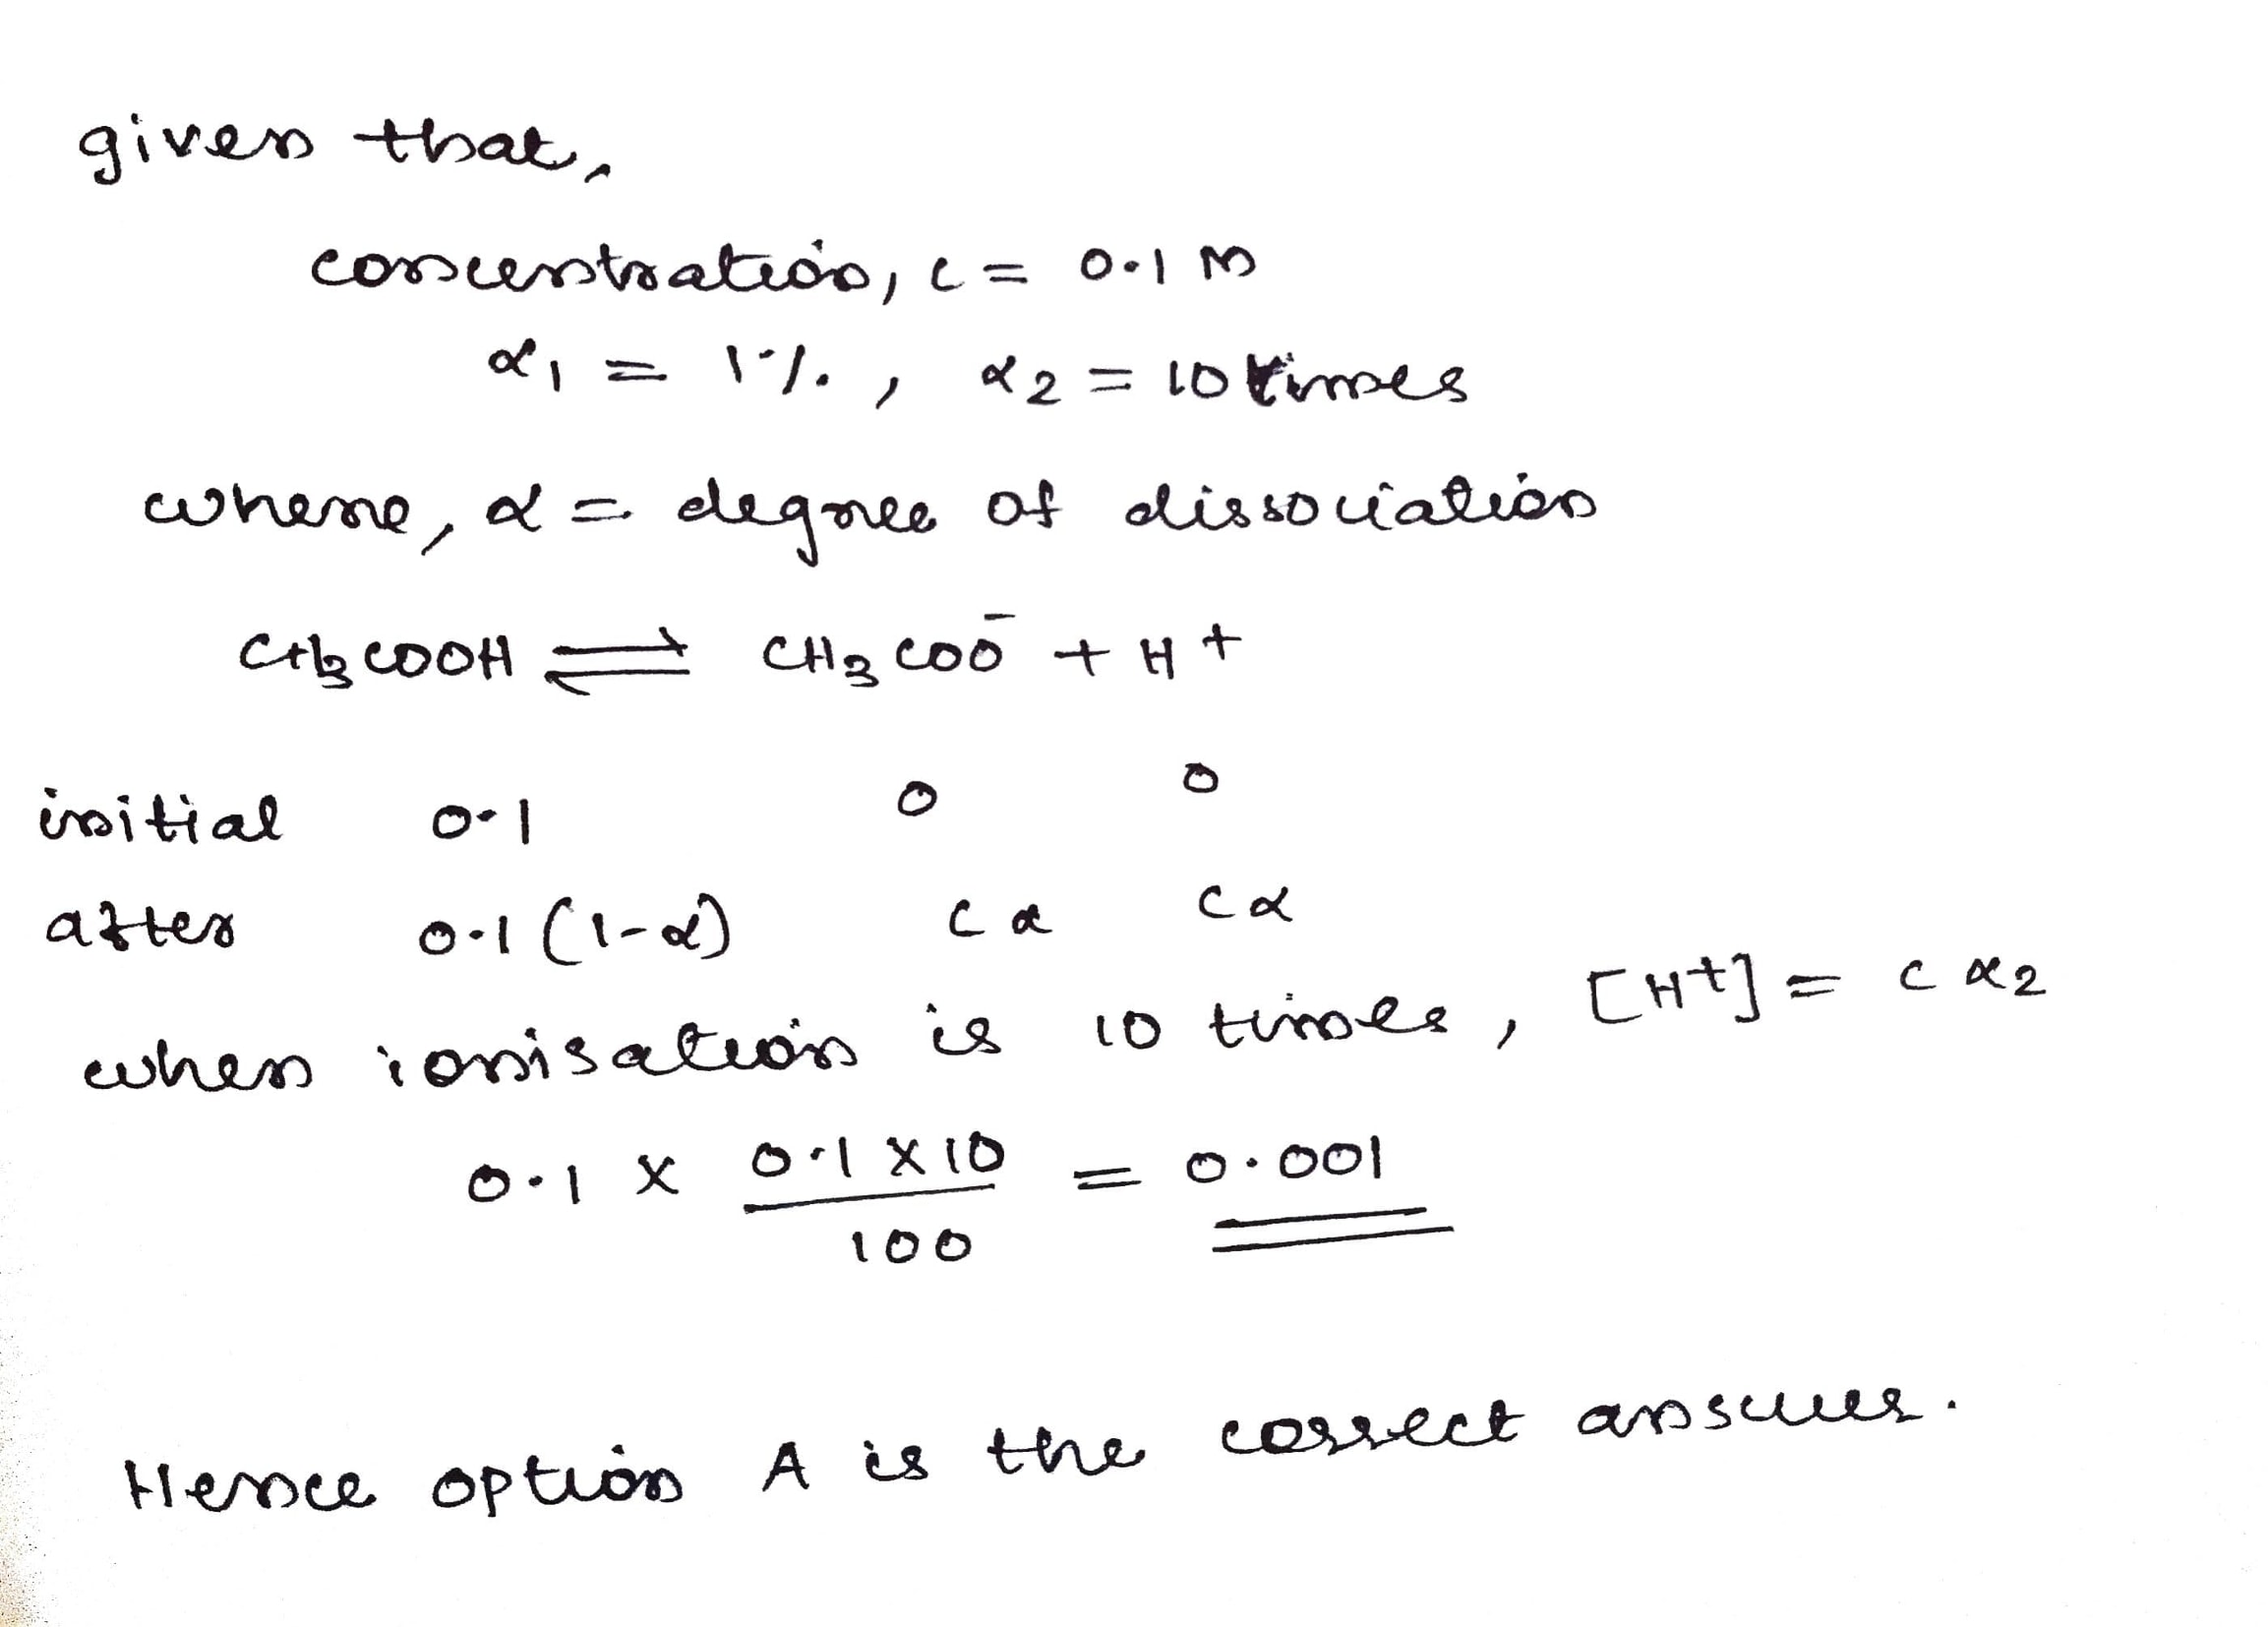 given that,
concentration, c = 0.1 M
α₁ = 1%, α₂ = 10 times
where, α = degree of dissociation
CH₃COOH ⇌ CH₃COO⁻ + H⁺
initial 0.1 0 0
after 0.1(1-α) cα cα
when ionisation is 10 times, [H⁺] = cα₂
0.1 × 0.1×10/100 = 0.001
Hence option A is the correct answer.